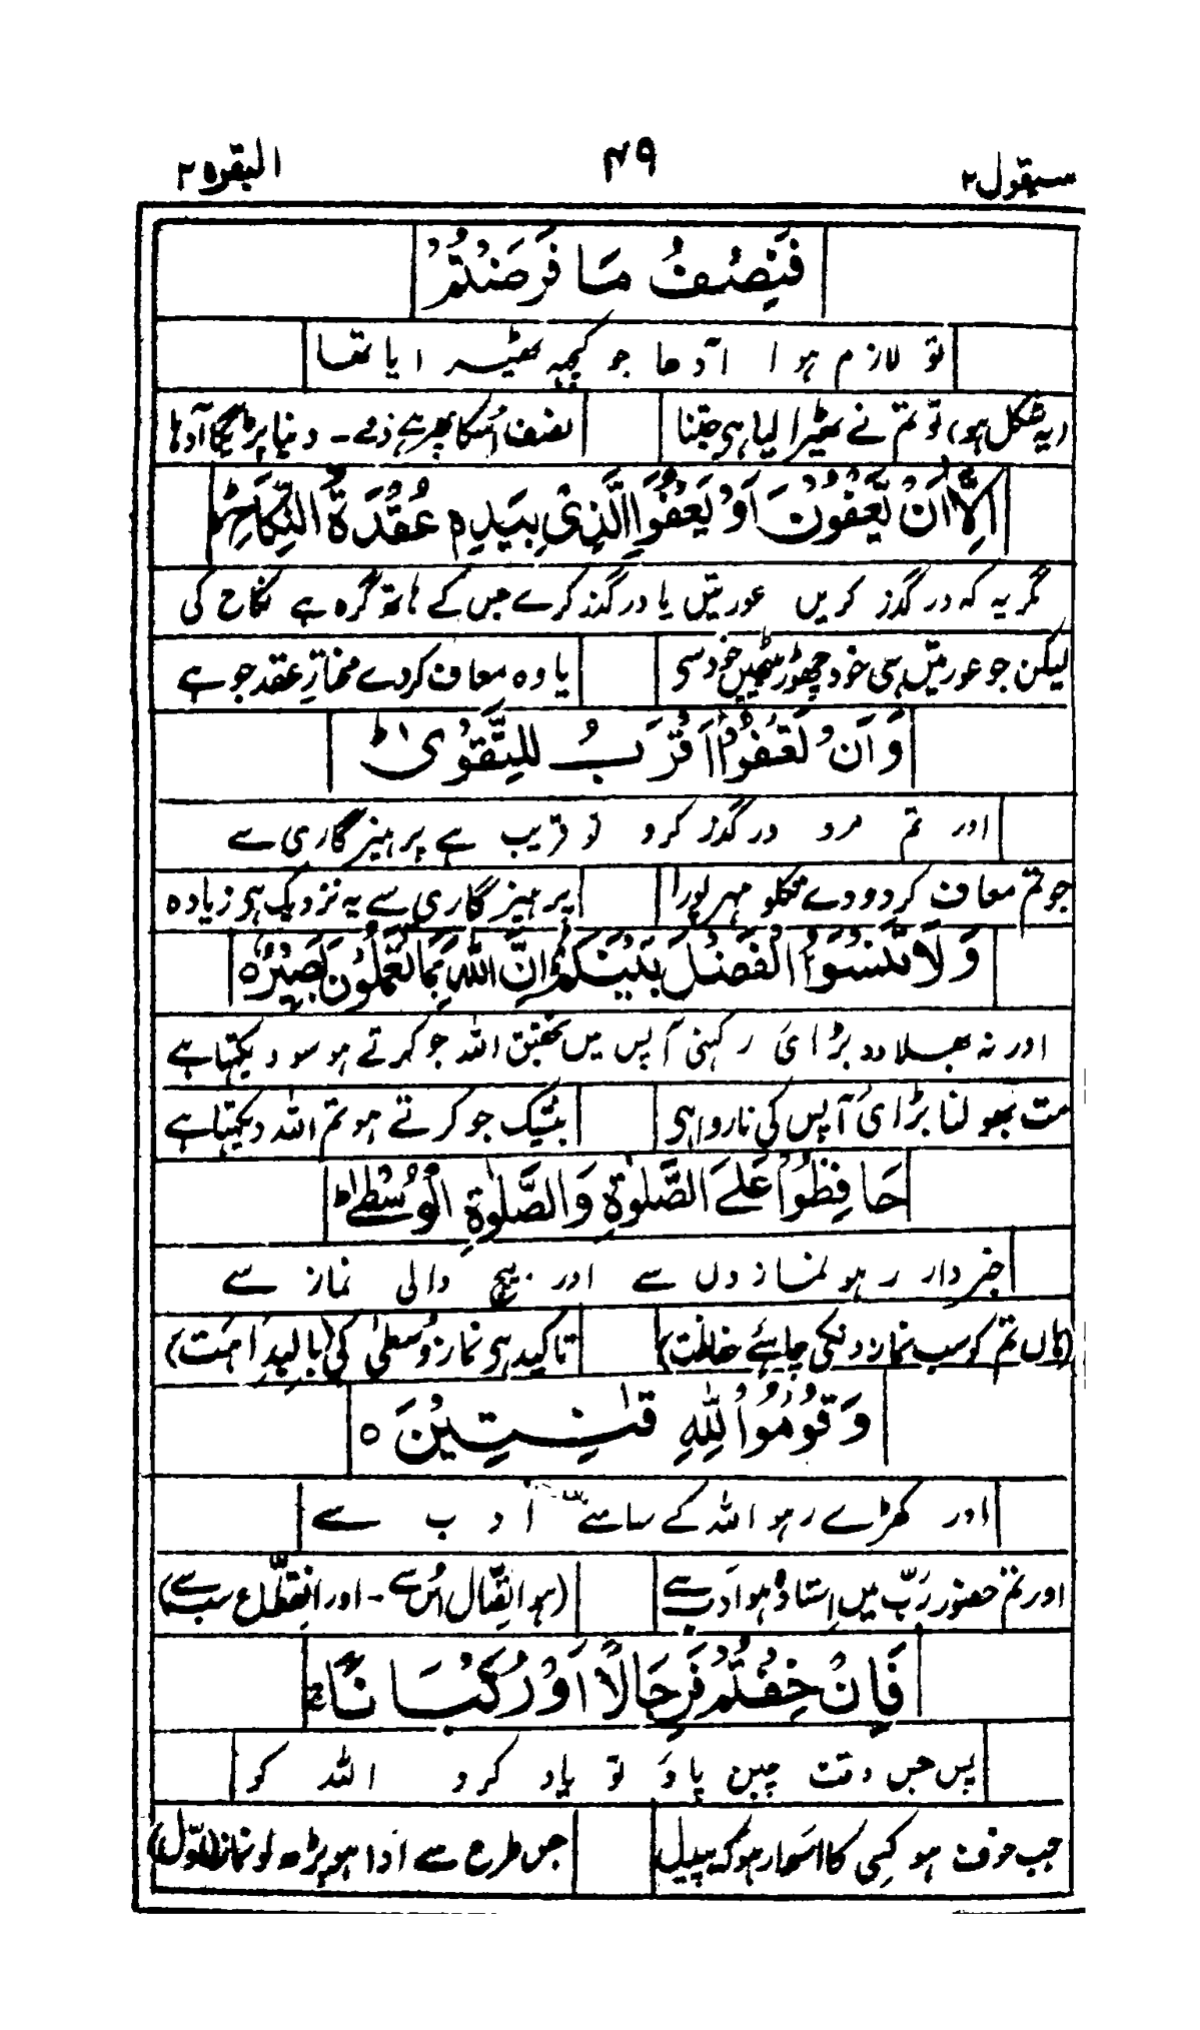 سیقول ۲ ۴۹ البقرہ ۲
فَنِصْفُ مَا فَرَضْتُمْ
تو لازم ہوا آدھا جو کچھ ٹھیرایا تھا
(یہ شکل ہو) تو تم نے ٹھیرا لیا ہی جتنا نصف اُسکا پھر ہے ذمے۔ دینا پڑیگا آدھا
اِلَّا اَنْ یَّعْفُوْنَ اَوْ یَعْفُوَا الَّذِیْ بِیَدِہٖ عُقْدَۃُ النِّکَاحِ ط
مگر یہ کہ درگذر کریں عورتیں یا درگذر کرے جس کے ہاتھ گرہ ہے نکاح کی
لیکن جو عورتیں ہی خود چھوڑ بیٹھیں خود سی یا وہ معاف کر دے مختارِ عقد جو ہے
وَاَنْ تَعْفُوْٓا اَقْرَبُ لِلتَّقْوٰی ط
اور تم مرد درگذر کرو تو قریب ہے پرہیزگاری سے
جو تم معاف کر دو دے مہر پورا پرہیزگاری سے یہ نزدیک ہی زیادہ
وَلَا تَنْسَوُا الْفَضْلَ بَیْنَکُمْ اِنَّ اللّٰہَ بِمَا تَعْمَلُوْنَ بَصِیْرٌ ہ
اور نہ بھلا دو بڑائی رکھنی آپس میں تحقیق اللہ جو کرتے ہو سو دیکھتا ہے
مت بھولنا بڑائی آپس کی ناروا ہی بیشک جو کرتے ہو تم اللہ دیکھتا ہے
حَافِظُوْا عَلَی الصَّلَوٰۃِ وَالصَّلٰوۃِ الْوُسْطٰی ط
خبردار رہو نمازوں سے اور بیچ والی نماز سے
(ہاں تم کو سب نمازونکی چاہئے حفاظت) تاکید ہی نماز وُسطیٰ کی
وَقُوْمُوْا لِلّٰہِ قٰنِتِیْنَ ہ
اور کھڑے رہو اللہ کے سامنے ادب سے
اور تم حضورِ رَبّ میں اِستادہ ہو ادب سے (ہو اتّصال اُس سے۔ اور انقطاع سب سے)
فَاِنْ خِفْتُمْ فَرِجَالًا اَوْ رُکْبَانًا ج
پس جس وقت چین پاؤ تو یاد کرو اللہ کو
جب خوف ہو کسی کا ہو کہ پیدل جس طرح سے ادا ہو پڑھ لو نماز